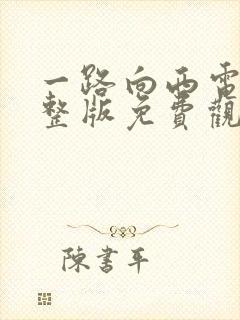 一路向西電
整版免費觀
陳書平